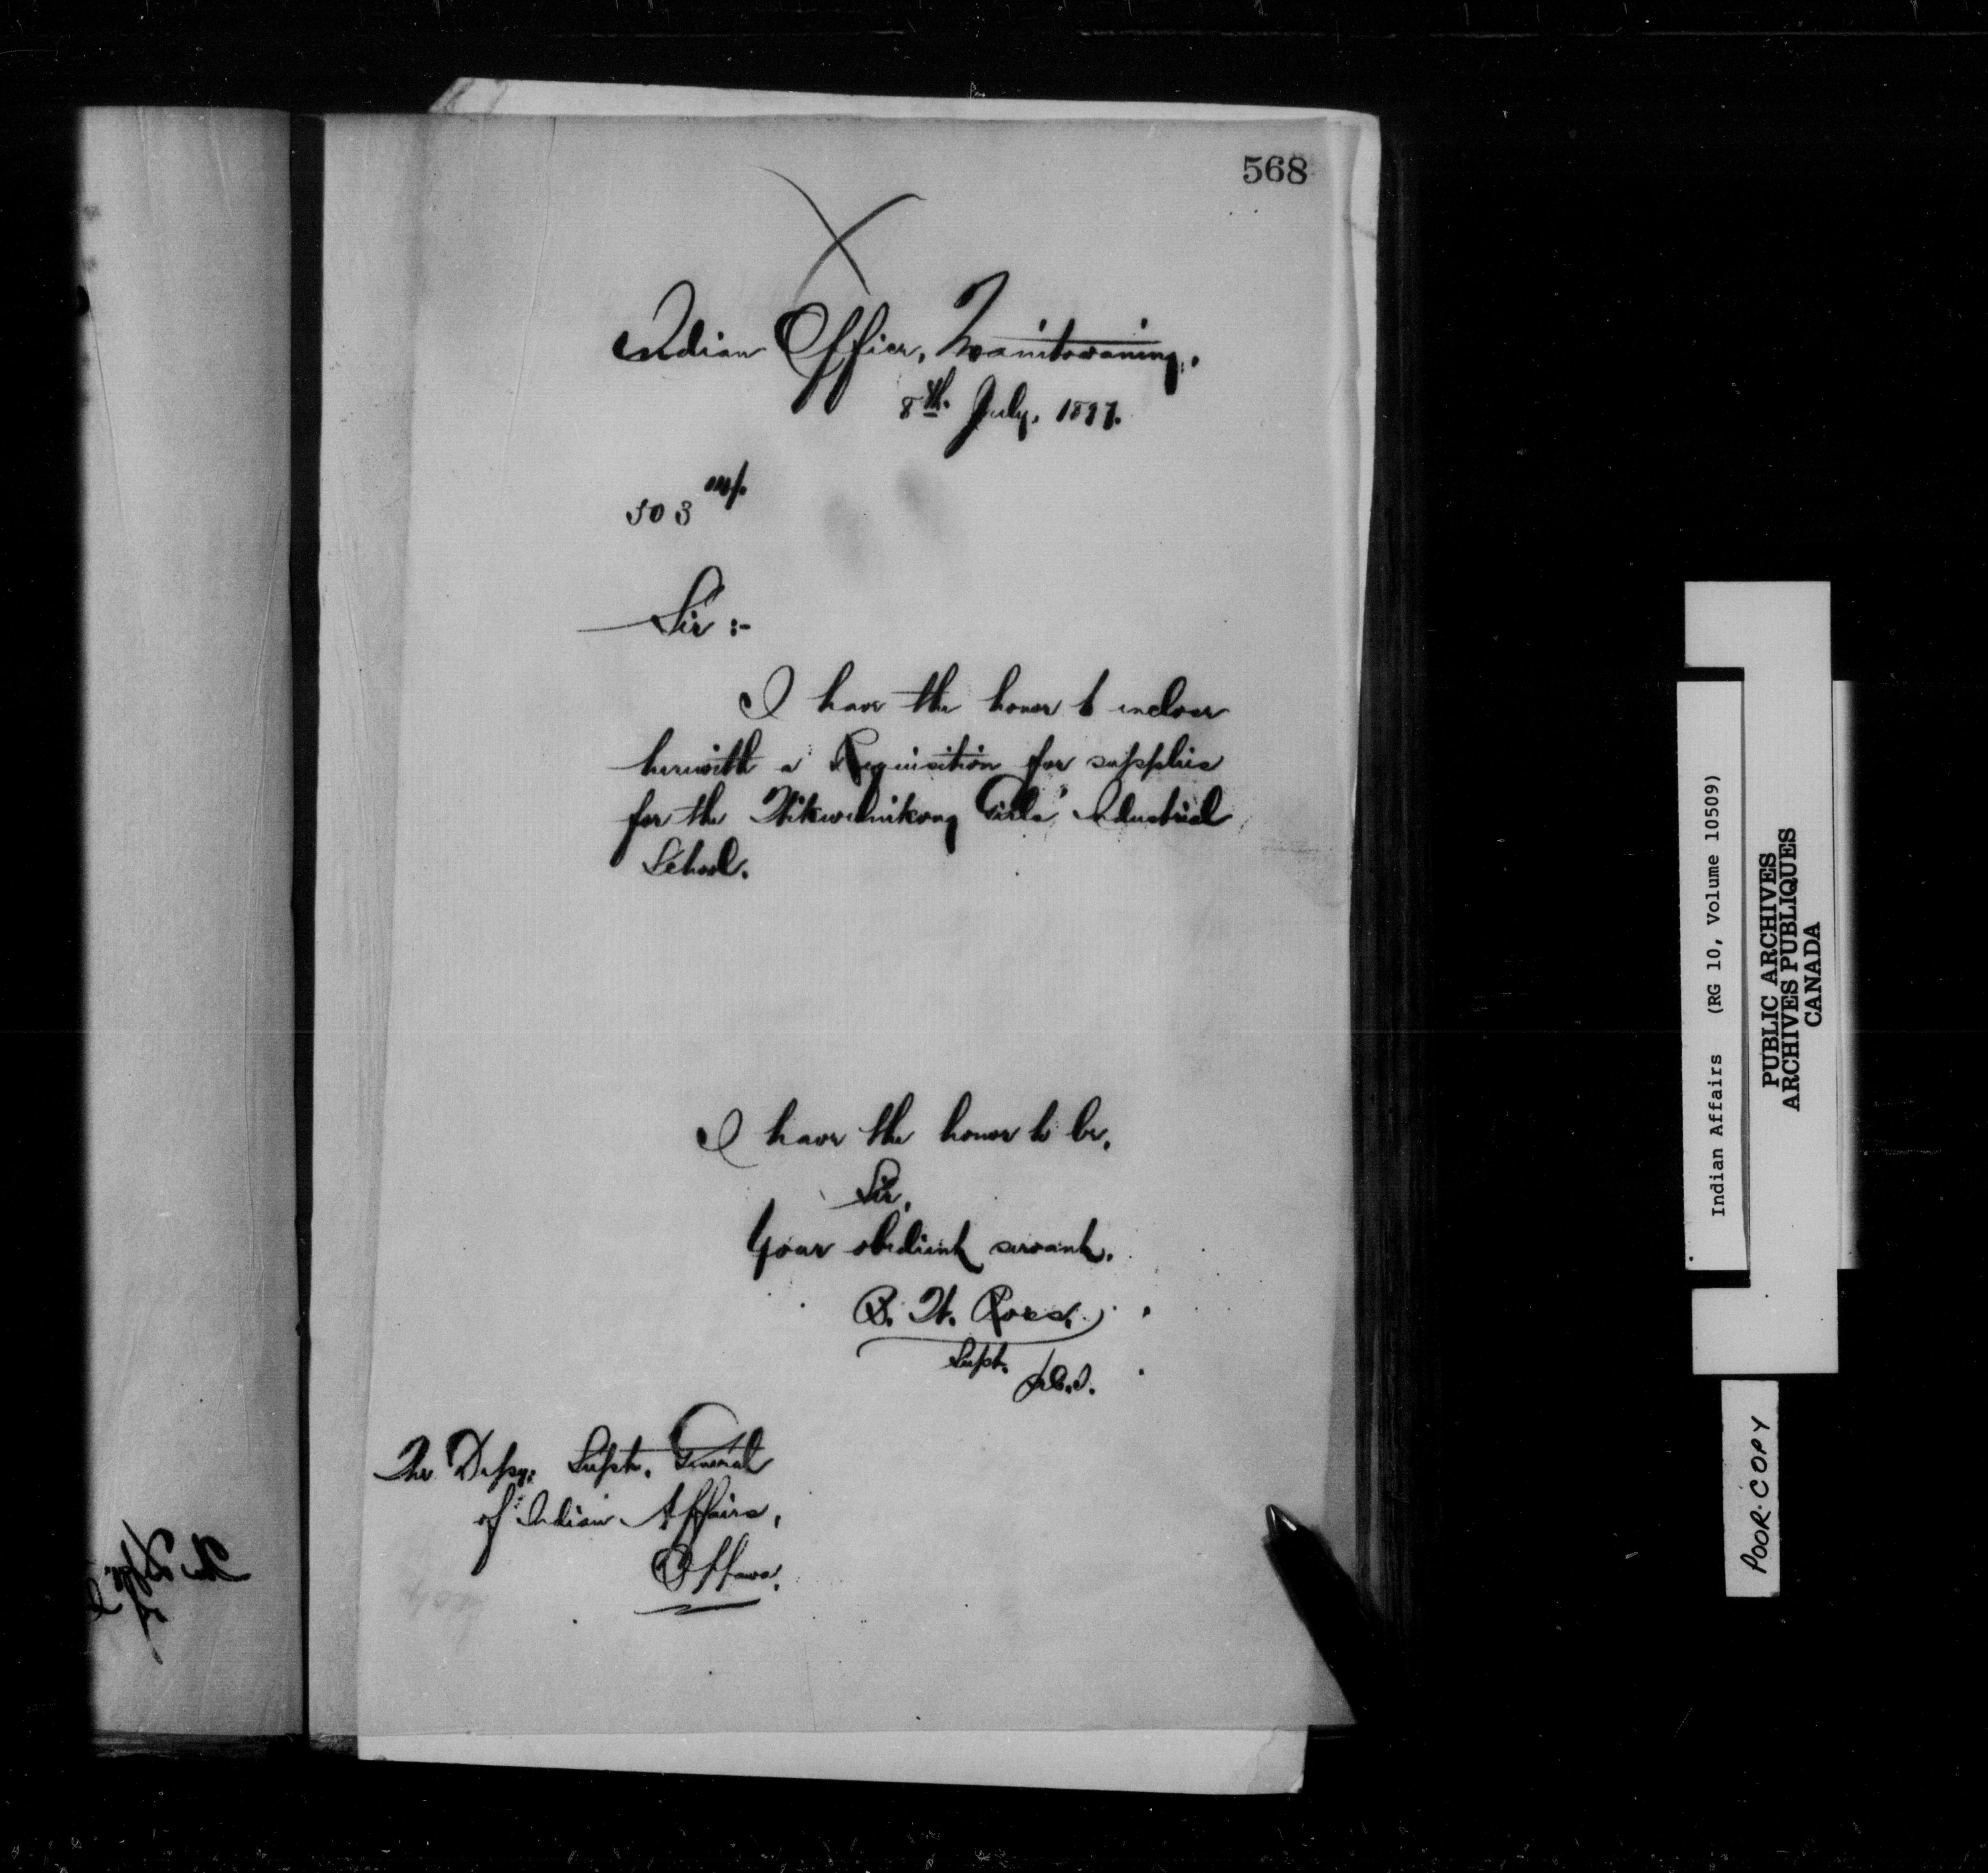 568
Indian Office, Manitowaning,
8th July, 1897.
503
Sir :-
I have the honor to inclose
herewith a Requisition for supplies
for the Wikwemikong Girls' Industrial
School.
I have the honor to be,
Sir,
Your obedient servant,
B. W. Ross.
Supt.
The Depy. Supt. General
of Indian Affairs,
Ottawa.
Indian Affairs (RG 10, Volume 10509)
PUBLIC ARCHIVES
ARCHIVES PUBLIQUES
CANADA
POOR COPY